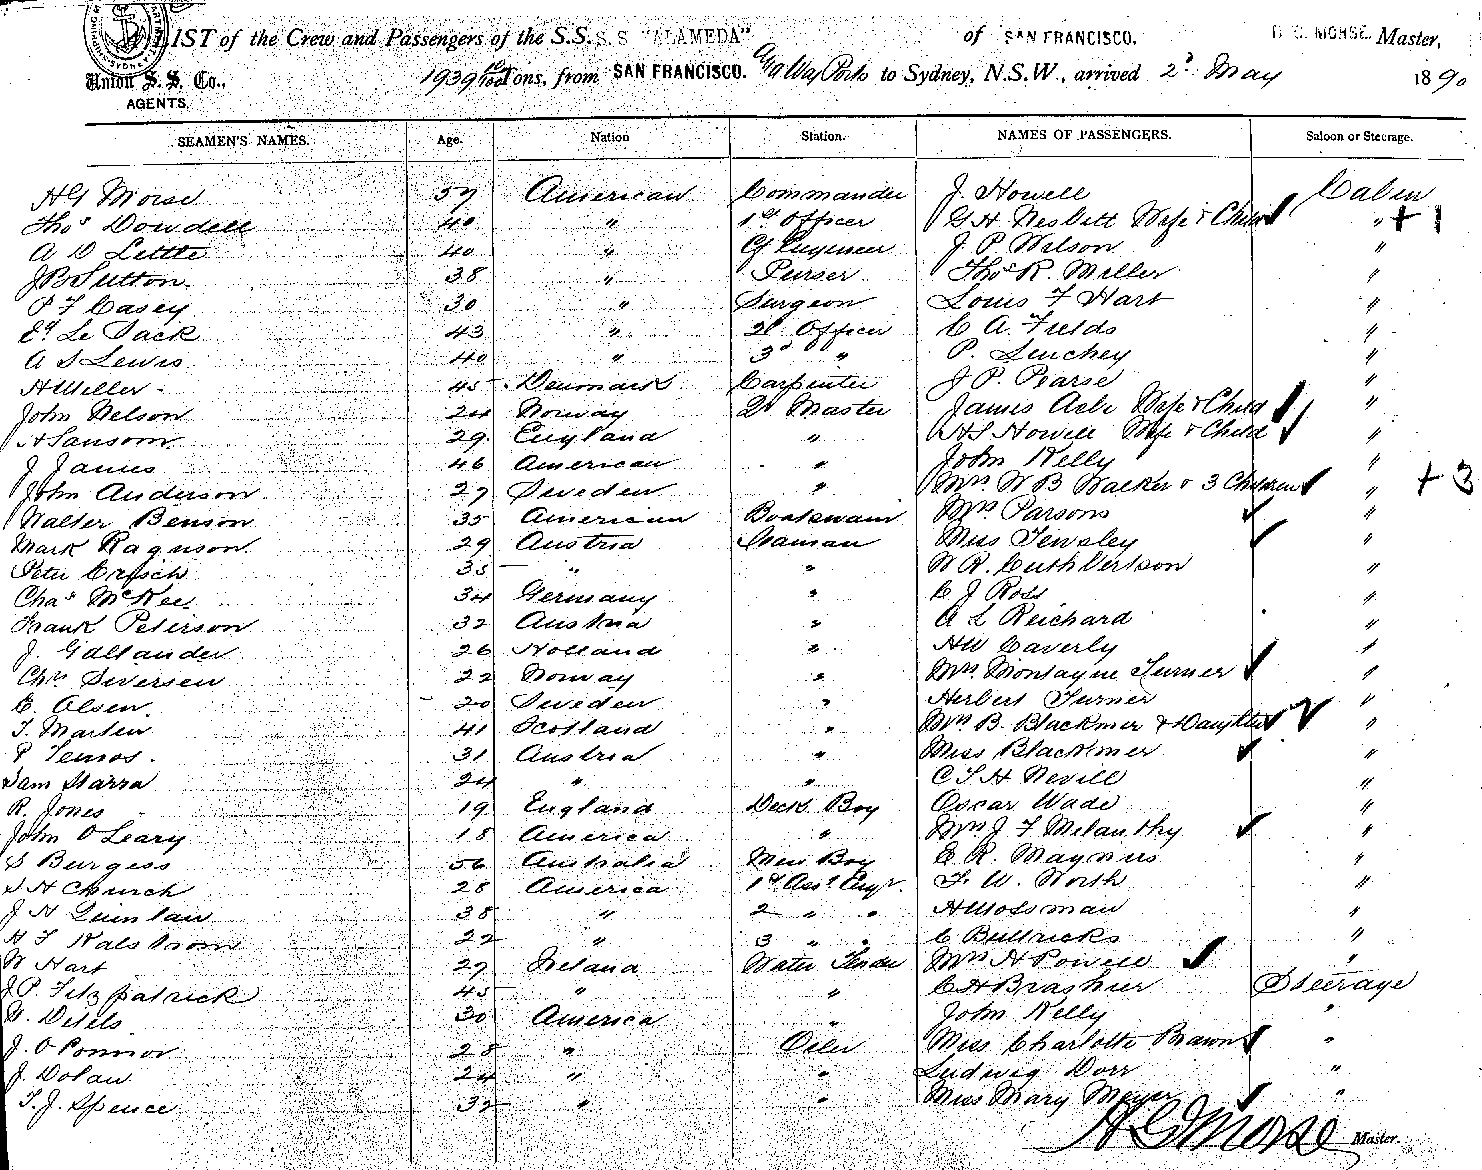 LIST of the Crew and Passengers of the S.S. S.S "ALAMEDA" of SAN FRANCISCO. H. G. MORSE Master,
Union S. S. Co., 1939 Tons, from SAN FRANCISCO. & Way Ports to Sydney, N.S.W., arrived 2d May 1890
AGENTS.
SEAMEN'S NAMES. Age. Nation Station. NAMES OF PASSENGERS. Saloon or Steerage.
H G Morse 57 American Commander J. Howell Cabin
Thos Dowdell 40 " 1st Officer G H Nesbitt Wife & Child " + 1
A D Little 40 " Cf Engineer J P Wilson "
J B Sutton 38 " Purser Thos R. Miller "
P F Casey 30 " Surgeon Louis F Hart "
Ed Le Pack 43 " 2d Officer C A. Fields "
A S Lewis 40 " 3d " P. "
H Weller 45 Denmark Carpenter J P. Pearse "
John Nelson 24 Norway Qr Master James Wife & Child "
A Sansom 29 England " H S Howell Wife & Child "
J James 46 American " John Kelly "
John Anderson 27 Sweden " Mrs W B Walker & 3 Children " + 3
Walter Benson 35 American Boatswain Mrs Parsons "
Mark Raguson 29 Austria Seaman Miss Tewsley "
Peter 35 " " W R. Cuthbertson "
Chas McKee 34 Germany " C J Ross "
Frank Peterson 32 Austria " A L Reichard "
J. Gallander 26 Holland " H W Caverly "
Chrs Siversen 22 Norway " Mrs Montayne Turner "
C. Olsen 20 Sweden " Herbert Turner "
T. Martin 41 Scotland " Mrs B. Blackmer & Daughter "
P 31 Austria " Miss Blackmer "
Sam Starra 24 " " C S H Nevill "
R. Jones 19 England Deck Boy Oscar Wade "
John O Leary 18 America " Mrs J F Melanthy "
S Burgess 56 Australia Mess Boy E R. Maynus "
S H Church 28 America 1st Asst Engr. F. W. North "
J H Quinlan 38 " 2 " " H Mossman "
H F Kalstrom 22 " 3 " " C Buttricks "
W Hart 27 Ireland Water Tender Mrs H Powell "
J. P. Fitzpatrick 45 " " C H Brashier Steerage
W. Desels 30 America " John Kelly "
J. O Connor 28 " Oiler Miss Charlotte Brawn "
J. Dolan 24 " " Ludwig Dorr "
T. J. Spence 32 " " Miss Mary Meyer "
H G Morse Master.